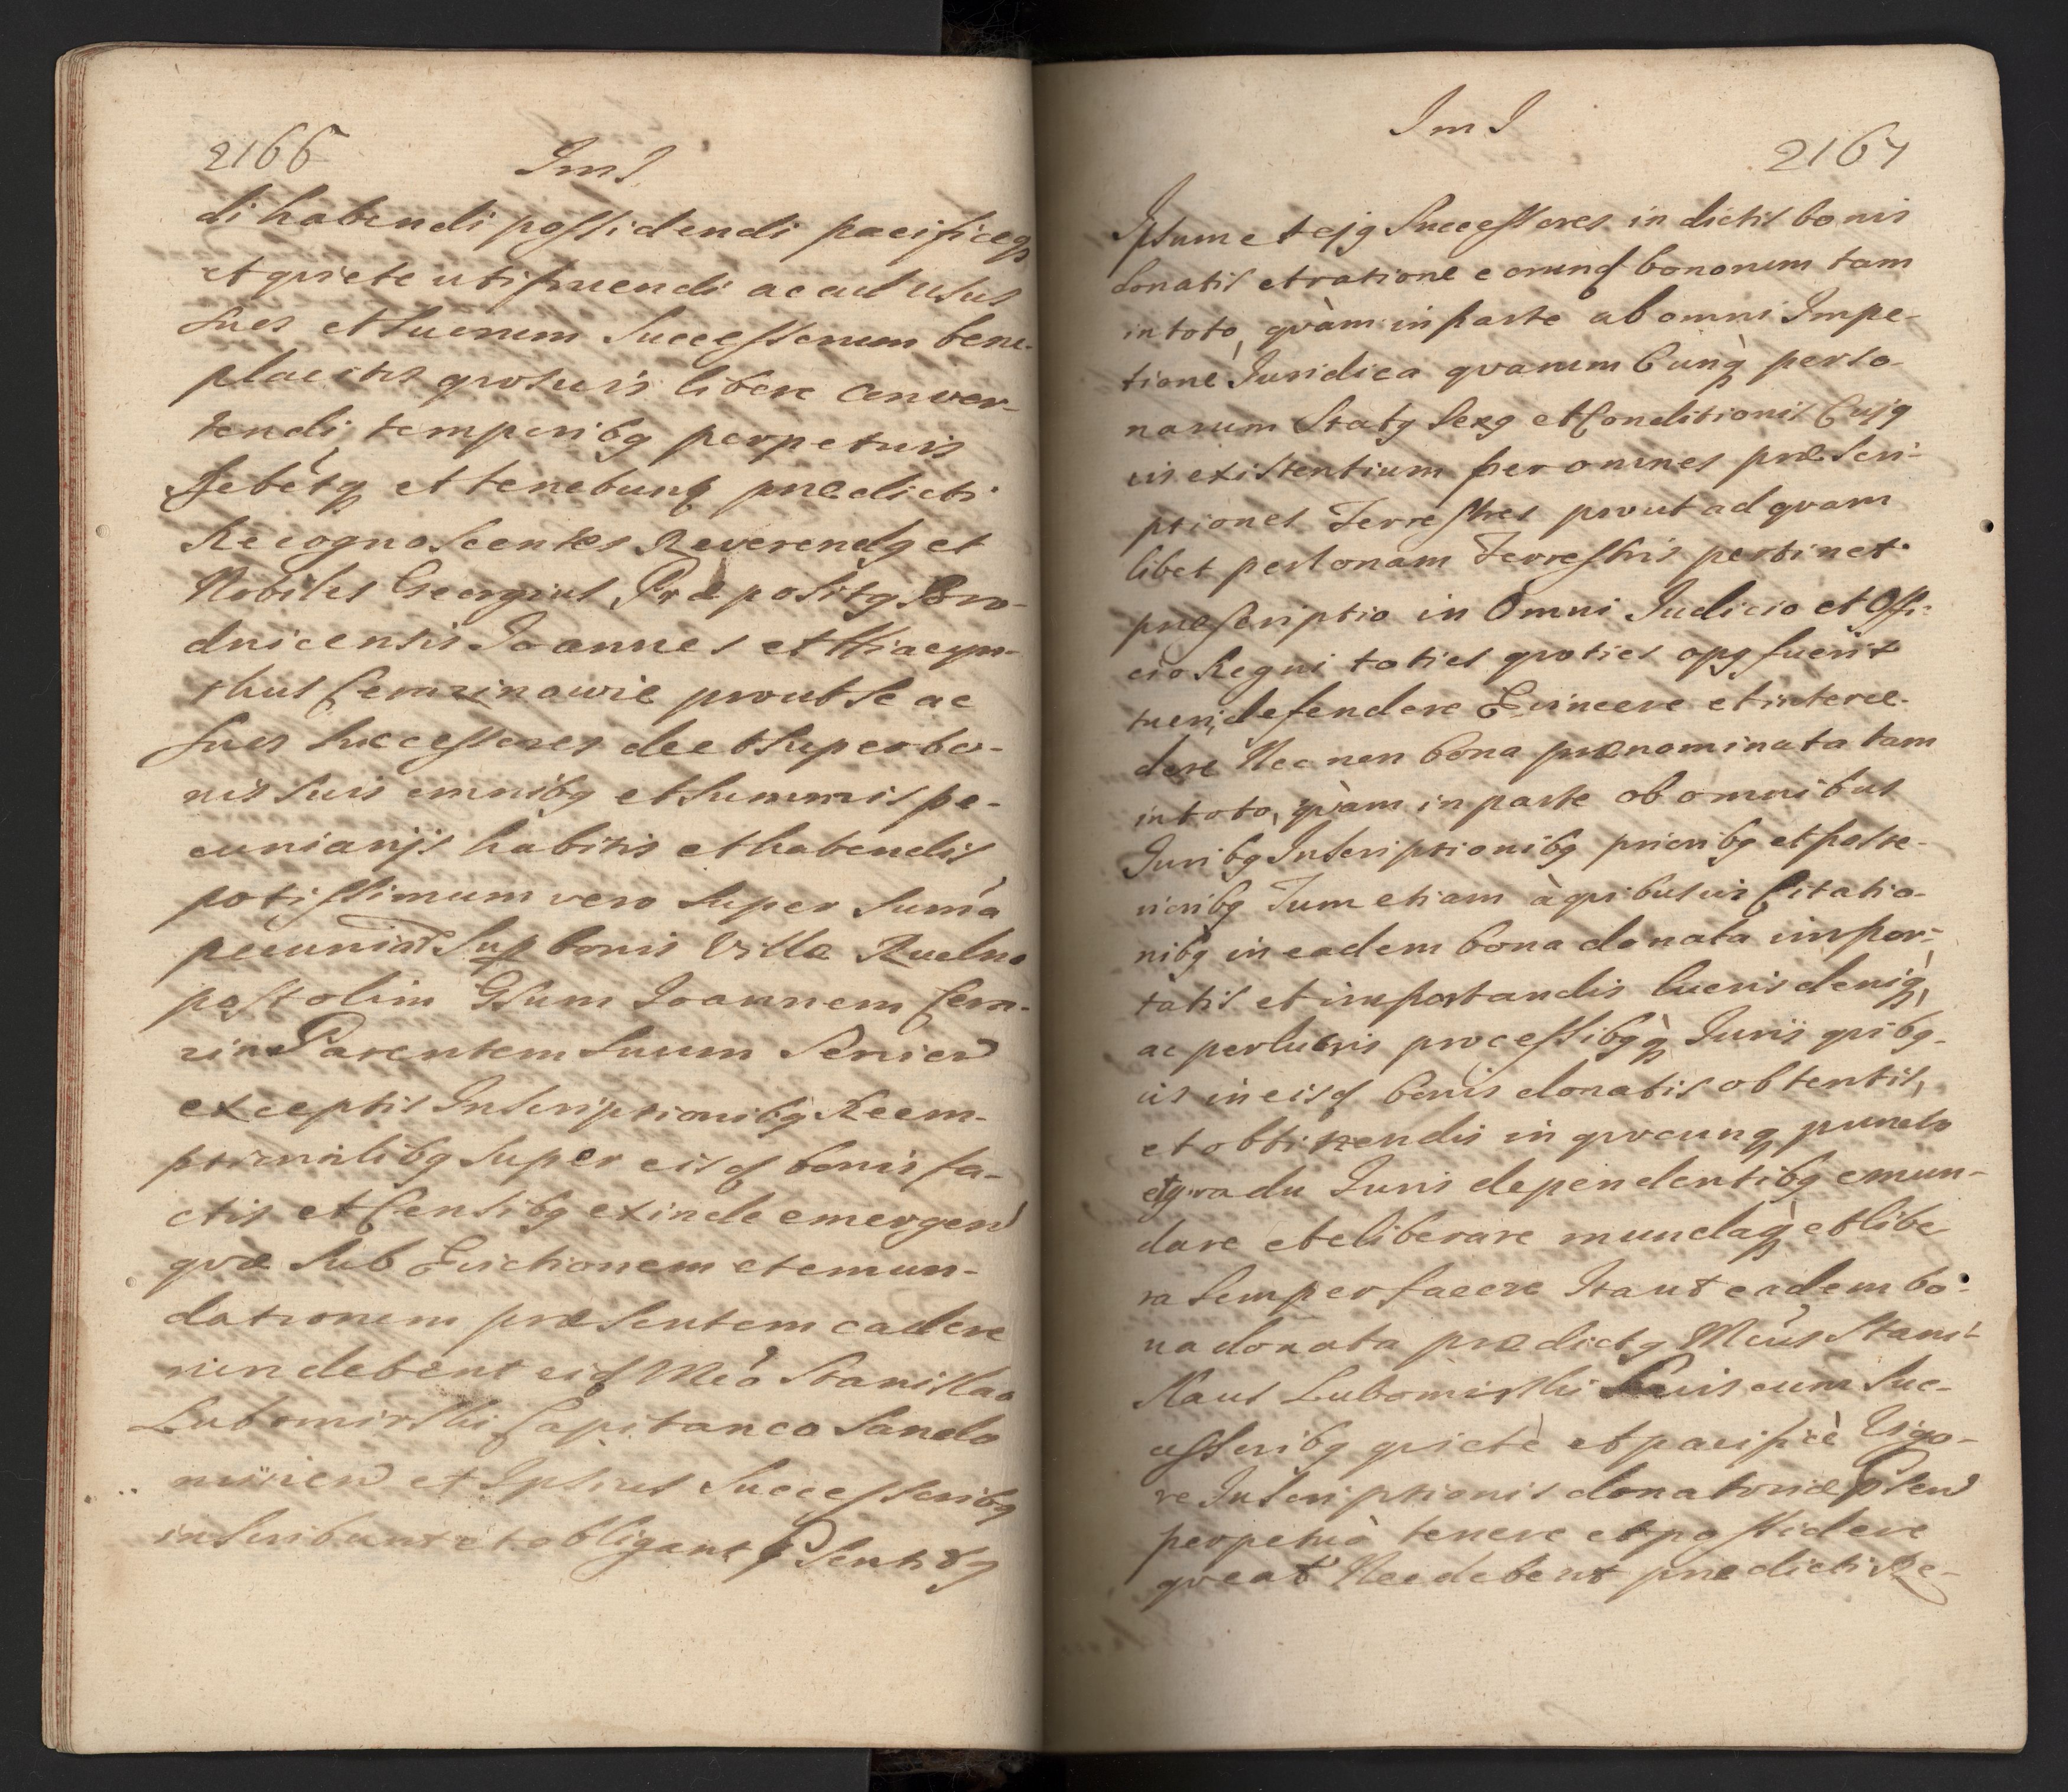 2166
ImI
di habendi possidendi pacificeq
et qviete utifruendi ac ad usus
suos et suorum Successorum bene-
placitos qvosuis libere conver-
tendi temporibq perpetuis
Debétq et tenebunt prædicti
Recognoscentes Reverendq et
Nobiles Georgius Præpositq Bro-
dnicensis Joannes et Hiacyn-
thus Cemzinowie prout se ac
suos successores de et super bo-
nis suis omnibq et summis pe-
cuniarijs habitis et habendis
potissimum vero super suma
pecuniar Sup bonis Villæ Rudno
post olim Gsum Joannem Cem-
zin Parentem suum Servien
exceptis Inscriptionibq Reem-
ptionalibq super eisd bonis fa-
ctis et Censibq exinde emergen
qvæ sub Evictionem et emun-
dationem præsentem cadere
non debent eid Mco Stanislao
Lubomirski Capitaneo Sando
mirien et Ipsius Successoribq
inscribunt et obligant Psentibq
ImI
2167
Ipsum et ejq Successores in dictis bonis
donatis et ratione eorund bonorum tam
in toto, qvàm in parte ab omni Impe-
tione Juridica qvarum Cunq perso-
narum Statq Sexq et Conditionis Cujq
vis existentium per omnes præscri-
ptiones Terrestres prout ad qvam
libet personam Terrestris pertinet
præscriptio in Omni Judicio et Offi-
cio Regni toties qvoties opq fuerit
tueri, defendere Evincere et interce-
dere Nec non bona prænominata tam
in toto, qvàm in parte ob omnibus
Juribq Inscriptionibq prioribq et poste-
rioribq Tum etiam à qvibusvis Citatio-
nibq in eadem bona donata impor-
tatis et importandis lucris deniq,
ac perlucris processibqq Juris qvibq-
vis in eisd bonis donatis obtentis,
et obtinendis in qvocunq puncto
et gradu Juris dependentibq emun-
dare et eliberare mundaq et libe
ra semper facere Ita ut eadem bo-
na donata prædictq Mcus Stani-
slaus Lubomirski Suis cum Suc-
cessoribq qviete et pacificè Vigo-
re Inscriptionis donatoriæ Psen
perpetuò tenere et possidere
qveat Nec debent prædicti Re-